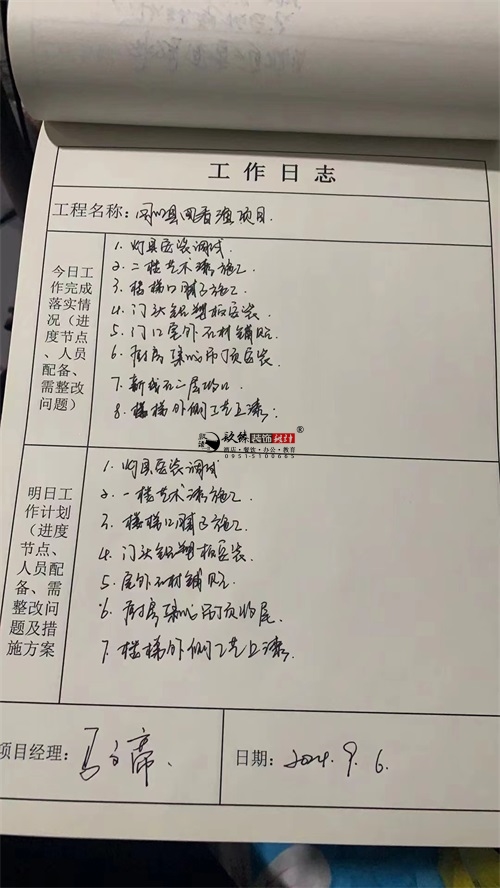 工作日志
工程名称：同心县回香源项目.
今日工作完成落实情况（进度节点、人员配备、需整改问题）
1. 灯具安装调试.
2. 二楼艺术漆施工.
3. 楼梯口腻子施工.
4. 门头铝塑板安装.
5. 门口室外石材铺贴.
6. 厨房集成吊顶安装.
7. 二层收口
8. 楼梯外侧工艺上漆.
玖臻装饰设计®
酒店·餐饮·办公·教育
0951-5100665
明日工作计划（进度节点、人员配备、需整改问题及措施方案
1. 灯具安装调试
2. 一楼艺术漆施工.
3. 楼梯口腻子施工.
4. 门头铝塑板安装.
5. 室外石材铺贴.
6. 厨房集成吊顶收尾.
7. 楼梯外侧工艺上漆.
项目经理：
日期：2024.9.6.